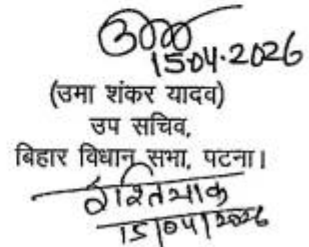 15.04.2026
(उमा शंकर यादव)
उप सचिव,
बिहार विधान सभा, पटना।
15/04/2026